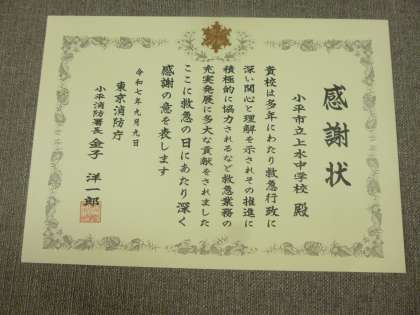 感謝状
小平市立上水中学校 殿
貴校は多年にわたり救急行政に
深い関心と理解を示されその推進に
積極的に協力されるなど救急業務の
充実発展に多大な貢献をされました
ここに救急の日にあたり深く
感謝の意を表します
令和七年九月九日
東京消防庁
小平消防署長 金子 洋一郎